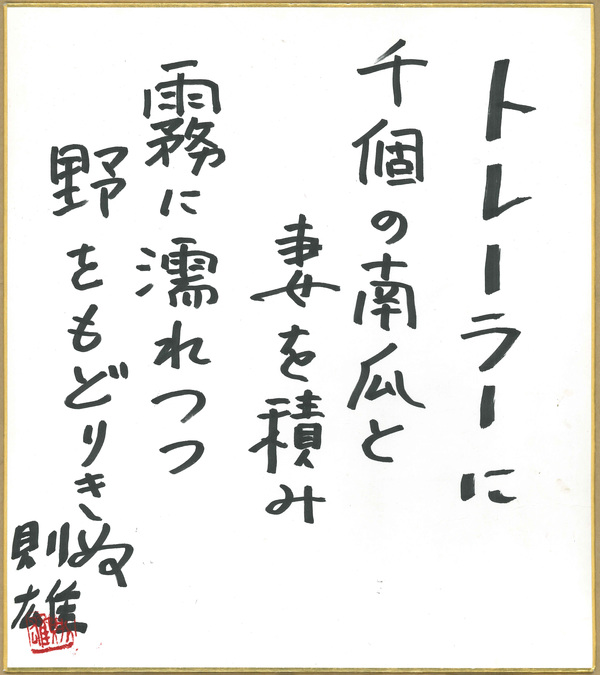 トレーラーに
千個の南瓜と
妻を積み
霧に濡れつつ
野をもどりきぬ
則雄